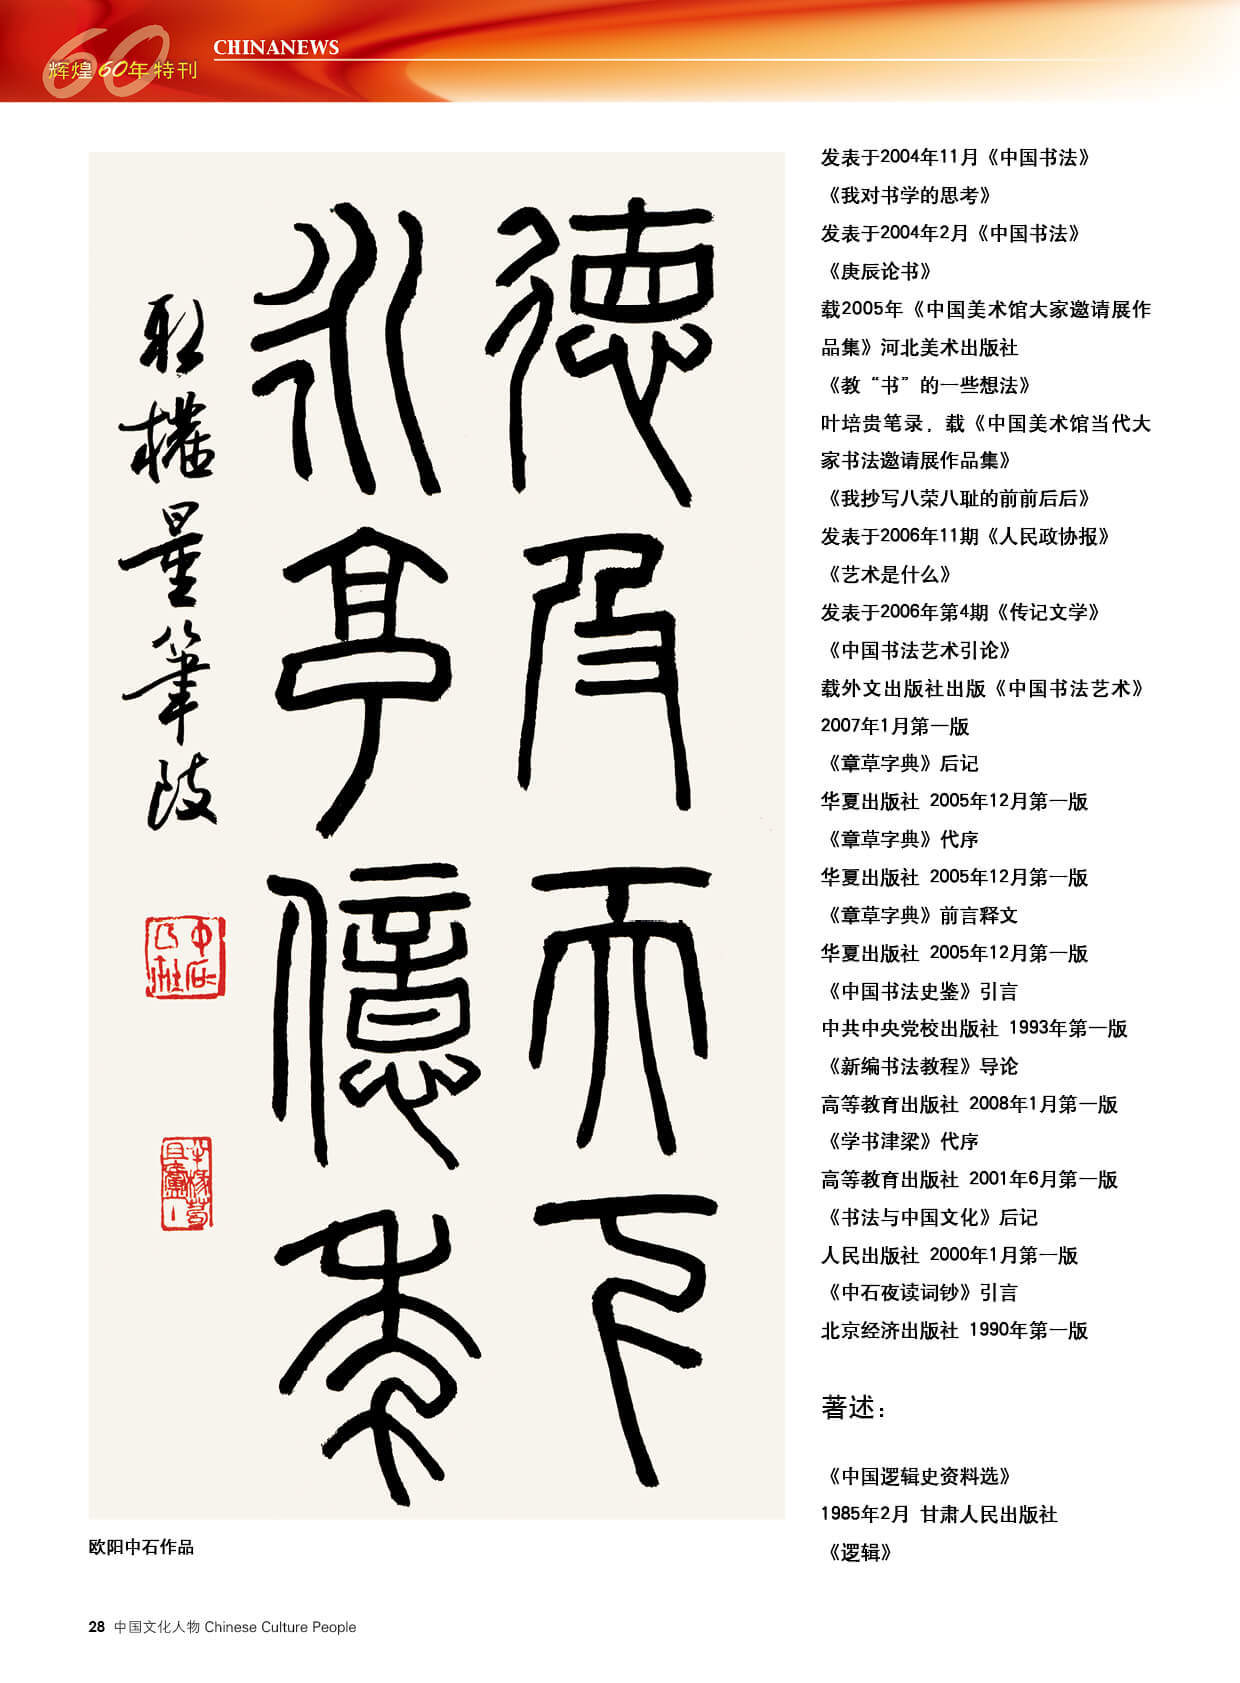 CHINANEWS
辉煌60年特刊
德及天下
永享億年
取權量筆
发表于2004年11月《中国书法》
《我对书学的思考》
发表于2004年2月《中国书法》
《庚辰论书》
载2005年《中国美术馆大家邀请展作
品集》河北美术出版社
《教“书”的一些想法》
叶培贵笔录，载《中国美术馆当代大
家书法邀请展作品集》
《我抄写八荣八耻的前前后后》
发表于2006年11期《人民政协报》
《艺术是什么》
发表于2006年第4期《传记文学》
《中国书法艺术引论》
载外文出版社出版《中国书法艺术》
2007年1月第一版
《章草字典》后记
华夏出版社 2005年12月第一版
《章草字典》代序
华夏出版社 2005年12月第一版
《章草字典》前言释文
华夏出版社 2005年12月第一版
《中国书法史鉴》引言
中共中央党校出版社 1993年第一版
《新编书法教程》导论
高等教育出版社 2008年1月第一版
《学书津梁》代序
高等教育出版社 2001年6月第一版
《书法与中国文化》后记
人民出版社 2000年1月第一版
《中石夜读词钞》引言
北京经济出版社 1990年第一版
著述：
《中国逻辑史资料选》
1985年2月 甘肃人民出版社
《逻辑》
欧阳中石作品
28 中国文化人物 Chinese Culture People